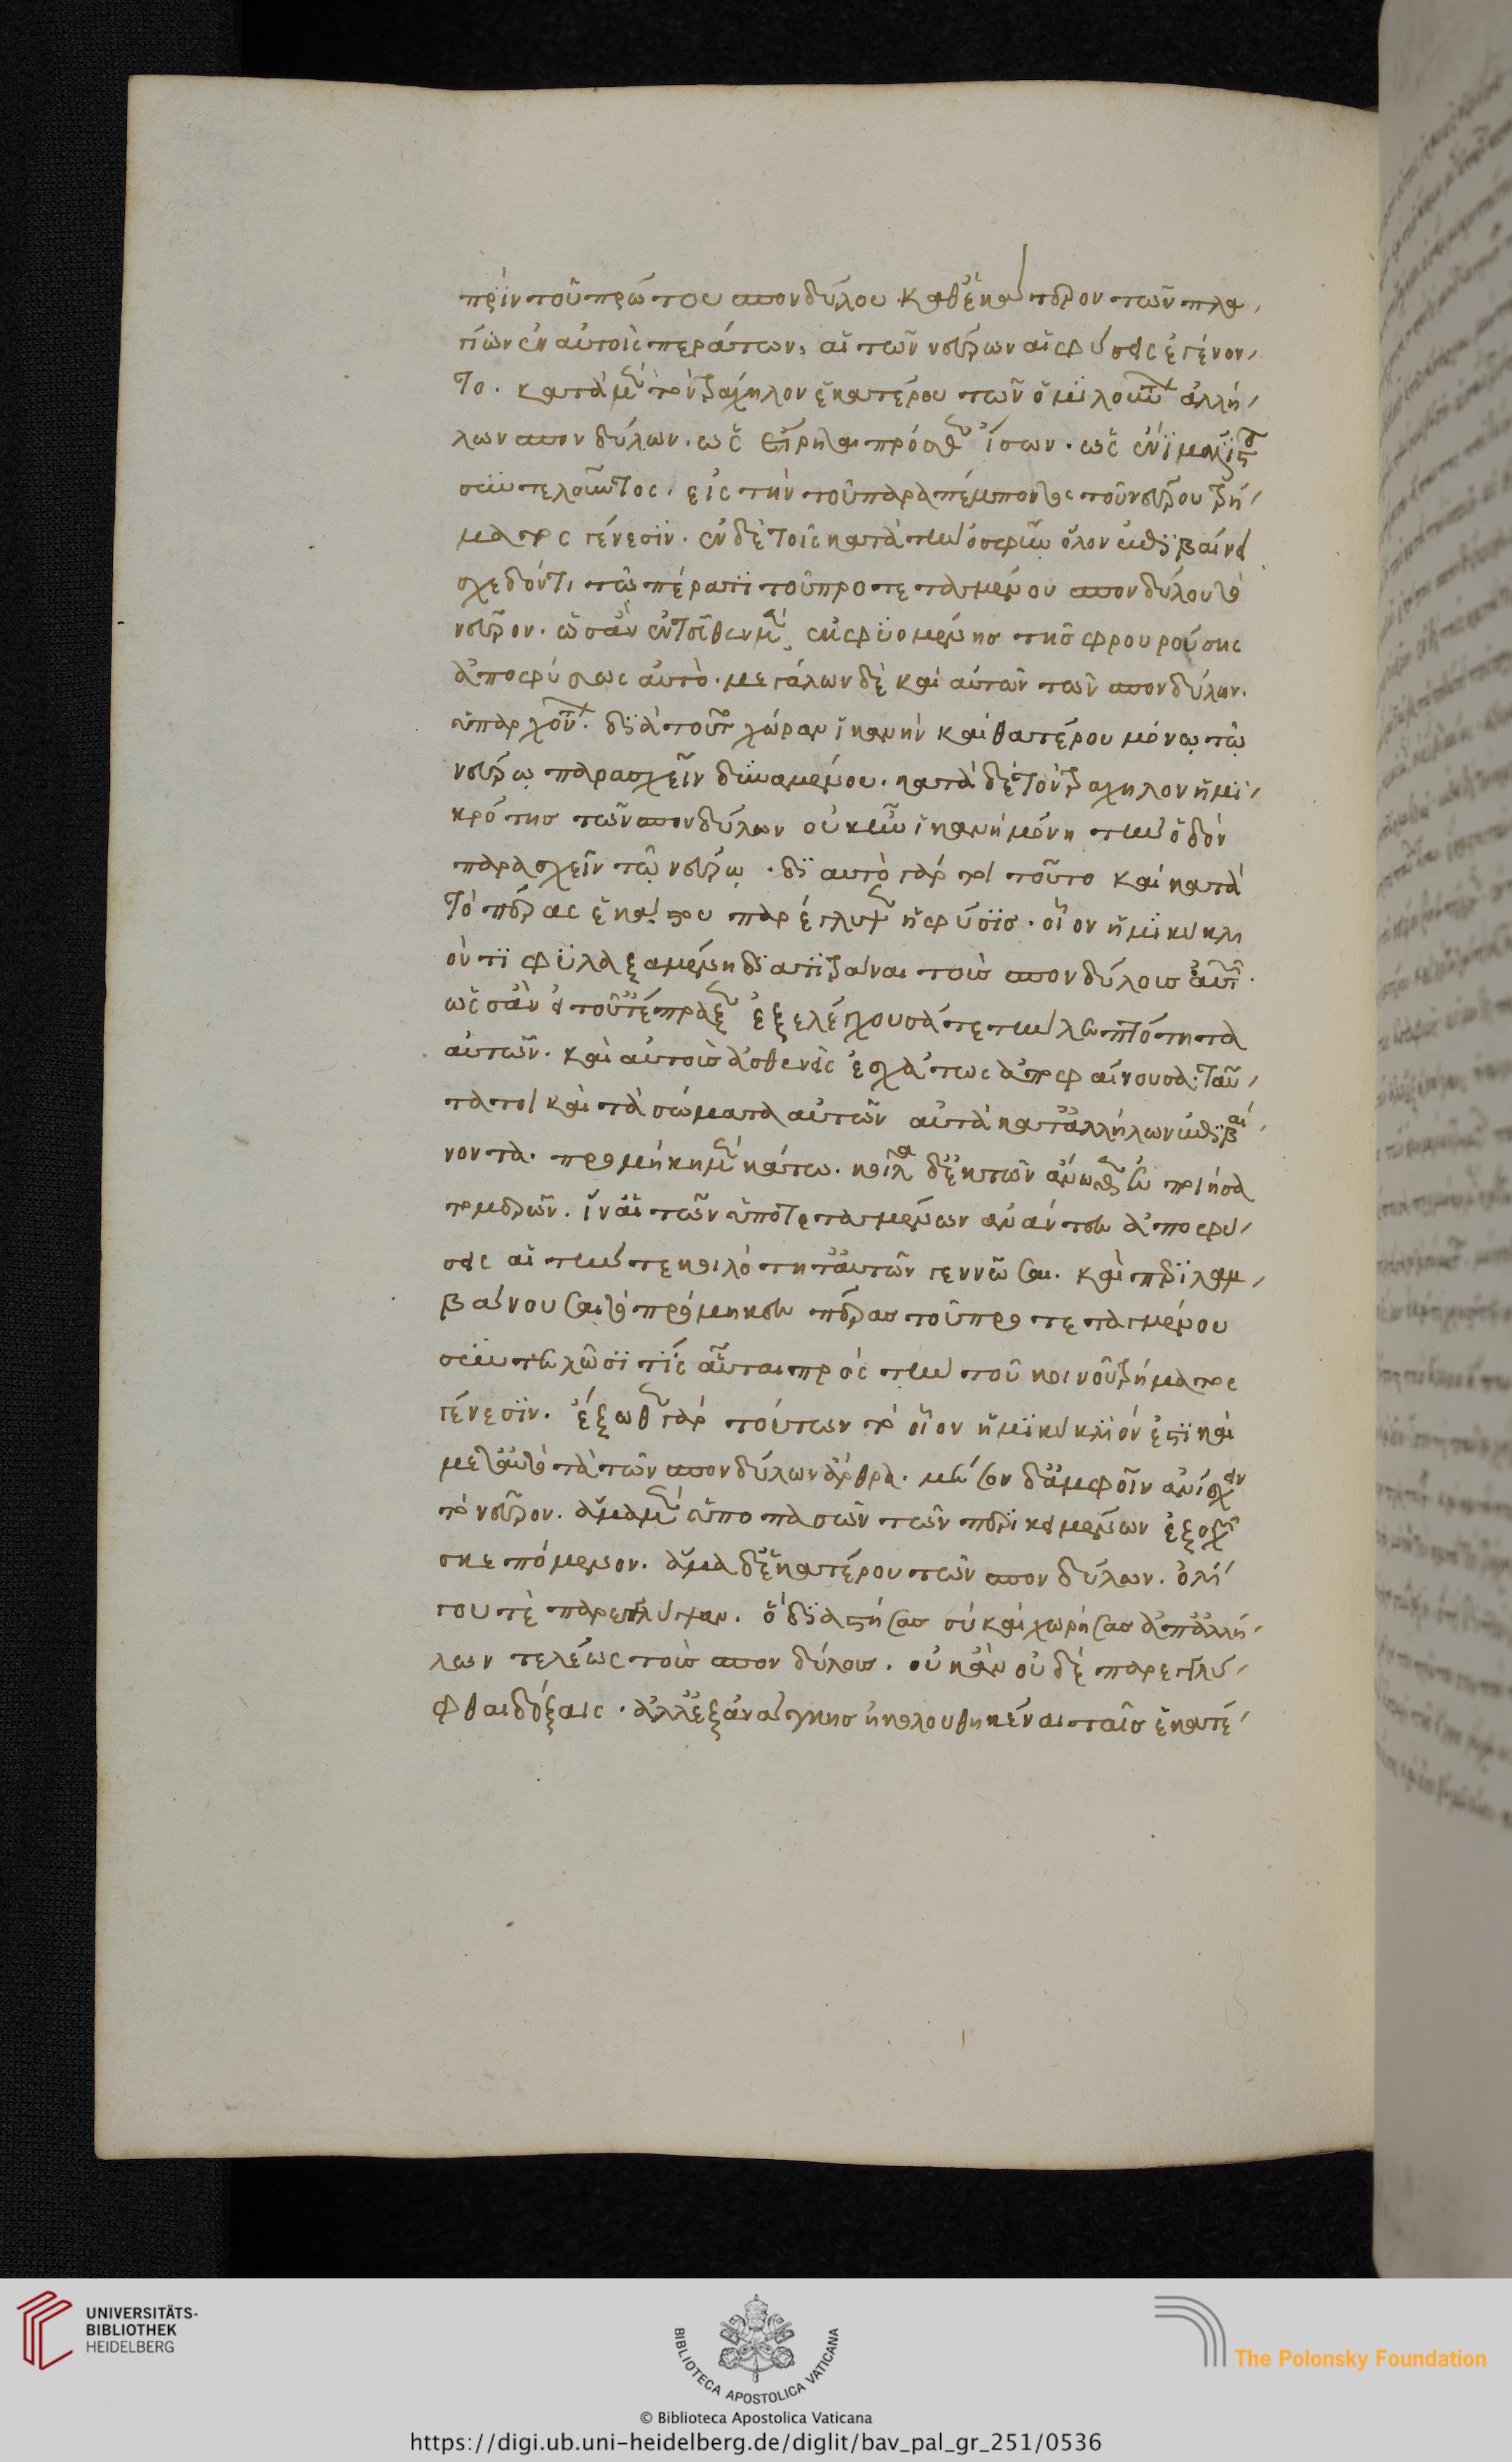 πρὶν τοῦ πρώτου σπονδύλου καθ' ἑκάτερον τῶν πλα
γίων ἐν αὐτοῖς περάτων, αἱ τῶν νεύρων αἱ φύσεις ἐγένον
το. κατὰ μὲν τὸν τράχηλον ἑκατέρου τῶν ὁμιλούντων ἀλλή
λων σπονδύλων. ὡς εἴρηται πρόσθεν ἴσων. ὡς ἔνι μάλιστα
συντελοῦντος. εἰς τὴν τοῦ παραπέμποντος τοῦ νεύρου τρή
ματος γένεσιν. ἐν δὲ τοῖς κατὰ τὴν ὀσφὺν ὅλον ἐπιβαίνει
σχεδόν τι τῷ πέρατι τοῦ προτεταγμένου σπονδύλου τὸ
νεῦρον. ὡσὰν ἐντεῦθεν μὲν ἐκφυομένης τῆς φρουρούσης
ἀποφύσεως αὐτό. μεγάλων δὲ καὶ αὐτῶν τῶν σπονδύλων
ὑπαρχόντων. διὰ τοῦτο χώραν ἱκανὴν καὶ θατέρου μόνῳ τῷ
νεύρῳ παρασχεῖν δυναμένου. κατὰ δὲ τὸν τράχηλον ἡ μι
κρότης τῶν σπονδύλων οὐκ ἦν ἱκανὴ μόνη τὴν ὁδὸν
παρασχεῖν τῷ νεύρῳ. δι' αὐτὸ γάρ τοι τοῦτο καὶ κατὰ
τὸ πέρας ἑκατέρου παρέγλυψεν ἡ φύσις. οἷον ἡμικύκλι
όν τι φυλαξαμένη διατιτρᾶναι τοῖς σπονδύλοις αὐτοῖς.
ὡς σὰν εἰ τοῦτ' ἔπραξεν ἐξελέγχουσά τε τὴν λεπτότητα
αὐτῶν. καὶ αὐτοῖς ἀσθενεῖς ἐσχάτως ἀποφαίνουσα. ταῦ
τά τοι καὶ τὰ σώματα αὐτῶν αὐτὰ κατ' ἀλλήλων ἐπιβαί
νοντα. προμήκη μὲν κάτω. κοῖλα δ' ἐκ τῶν ἄνωθεν ἐποίησα
το μερῶν. ἵν' αἱ τῶν ὑποτεταγμένων ἀνάντεις ἀποφύ
σεις αἱ τήν τε κοιλότητ' αὐτῶν γεννῶσαι. καὶ περιλαμ
βάνουσαι τὸ πρόμηκες πέρας τοῦ προτεταγμένου
συντελῶσί τις αὗται πρὸς τὴν τοῦ κοινοῦ τρήματος
γένεσιν. ἔξωθεν γὰρ τούτων τὸ οἷον ἡμικύκλιόν ἐστι καὶ
μετ' αὐτὸ τὰ τῶν σπονδύλων ἄρθρα. μέσον δ' ἀμφοῖν ἀνίσχειν
τὸ νεῦρον. ἅμα μὲν ὑπὸ πασῶν τῶν περικειμένων ἐξοχῶν
σκεπόμενον. ἅμα δ' ἑκατέρου τῶν σπονδύλων. ὀλί
γου τὲ παρέγλυψαν. ὃ διαστήσας σὺ καὶ χωρήσας ἀπ' ἀλλή
λων τελέως τοὺς σπονδύλους. οὐκ ἂν οὐδὲ παρεγλύ
φθαι δόξαις. ἀλλ' ἐξ ἀνάγκης ἠκολουθηκέναι ταῖς ἑκατέ
UNIVERSITÄTS-
BIBLIOTHEK
HEIDELBERG
BIBLIOTECA APOSTOLICA VATICANA
The Polonsky Foundation
© Biblioteca Apostolica Vaticana
https://digi.ub.uni-heidelberg.de/diglit/bav_pal_gr_251/0536